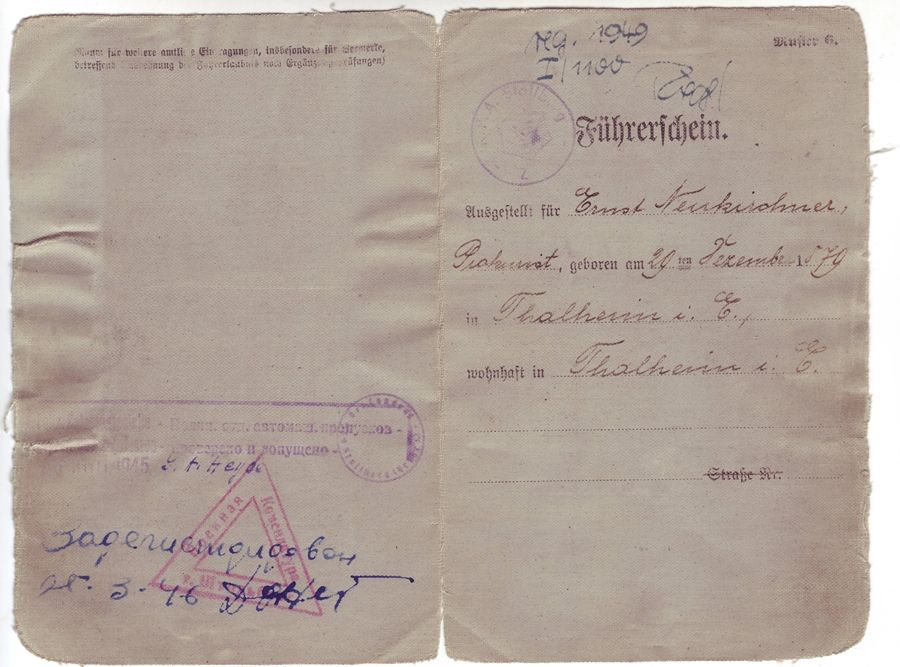 (Raum für weitere amtliche Eintragungen, insbesondere für Vermerke,
betreffend Ausdehnung der Fahrerlaubnis nach Ergänzungsprüfungen)
отд. автомат. пропусков -
проверено и допущено -
1945
Военная Комендатура
зарегистрирован
3-46
reg. 1949
I/1100
Muster 6.
Führerschein.
Ausgestellt für Ernst Neukirchner,
Prokurist, geboren am 29ten Dezember 1879
in Thalheim i. E.,
wohnhaft in Thalheim i. E.
Straße Nr.